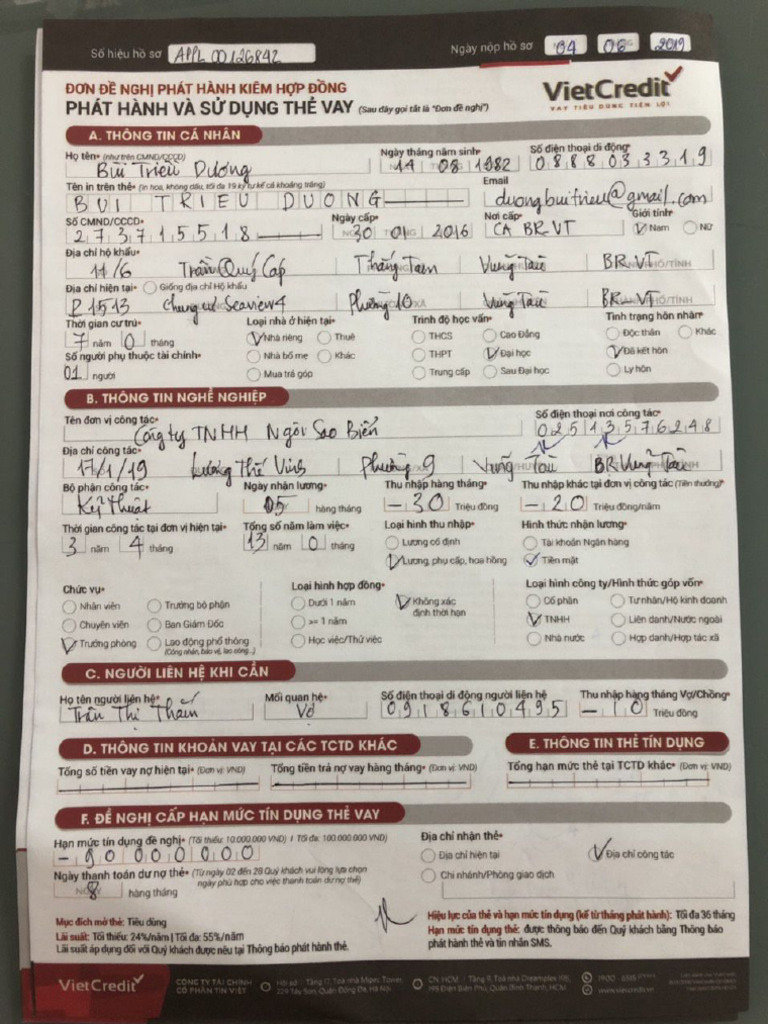 Số hiệu hồ sơ APPL 00126842 Ngày nộp hồ sơ 04 06 2019
ĐƠN ĐỀ NGHỊ PHÁT HÀNH KIÊM HỢP ĐỒNG
PHÁT HÀNH VÀ SỬ DỤNG THẺ VAY (Sau đây gọi tắt là "Đơn đề nghị")
VietCredit
VAY TIÊU DÙNG TIỆN LỢI
A. THÔNG TIN CÁ NHÂN
Họ tên* (như trên CMND/CCCD) Ngày tháng năm sinh* Số điện thoại di động*
Bùi Triều Dương 14 08 1982 0888033319
Tên in trên thẻ* (In hoa, không dấu, tối đa 19 ký tự kể cả khoảng trắng) Email
BUI TRIEU DUONG duongbuitrieu@gmail.com
Số CMND/CCCD* Ngày cấp* Nơi cấp* Giới tính*
273715518 30 01 2016 CA BR.VT Nam Nữ
Địa chỉ hộ khẩu*
11/6 Trần Quý Cáp Thắng Tam Vũng Tàu BR.VT
Địa chỉ hiện tại* Giống địa chỉ Hộ khẩu
P.1513 chung cư Seaview4 Phường 10 Vũng Tàu BR.VT
Thời gian cư trú* Loại nhà ở hiện tại* Trình độ học vấn* Tình trạng hôn nhân*
7 năm 0 tháng Nhà riêng Thuê THCS Cao Đẳng Độc thân Khác
Số người phụ thuộc tài chính* Nhà bố mẹ Khác THPT Đại học Đã kết hôn
01 người Mua trả góp Trung cấp Sau Đại học Ly hôn
B. THÔNG TIN NGHỀ NGHIỆP
Tên đơn vị công tác* Số điện thoại nơi công tác*
Công ty TNHH Ngôi Sao Biển 02513576248
Địa chỉ công tác*
17/1/19 Lương Thế Vinh Phường 9 Vũng Tàu BR Vũng Tàu
Bộ phận công tác* Ngày nhận lương* Thu nhập hàng tháng* Thu nhập khác tại đơn vị công tác (Tiền thưởng)*
Kỹ Thuật 05 hàng tháng - 30 Triệu đồng - 20 Triệu đồng/năm
Thời gian công tác tại đơn vị hiện tại* Tổng số năm làm việc* Loại hình thu nhập* Hình thức nhận lương*
3 năm 4 tháng 13 năm 0 tháng Lương cố định Tài khoản Ngân hàng
Lương, phụ cấp, hoa hồng Tiền mặt
Chức vụ* Loại hình hợp đồng* Loại hình công ty/Hình thức góp vốn*
Nhân viên Trưởng bộ phận Dưới 1 năm Không xác định thời hạn Cổ phần Tư nhân/Hộ kinh doanh
Chuyên viên Ban Giám Đốc >= 1 năm TNHH Liên danh/Nước ngoài
Trưởng phòng Lao động phổ thông Học việc/Thử việc Nhà nước Hợp danh/Hợp tác xã
(Công nhân, bảo vệ, lao công...)
C. NGƯỜI LIÊN HỆ KHI CẦN
Họ tên người liên hệ* Mối quan hệ* Số điện thoại di động người liên hệ Thu nhập hàng tháng Vợ/Chồng*
Trần Thị Thắm Vợ 0918610495 - 10 Triệu đồng
D. THÔNG TIN KHOẢN VAY TẠI CÁC TCTD KHÁC E. THÔNG TIN THẺ TÍN DỤNG
Tổng số tiền vay nợ hiện tại* (Đơn vị: VND) Tổng tiền trả nợ vay hàng tháng* (Đơn vị: VND) Tổng hạn mức thẻ tại TCTD khác* (Đơn vị: VND)
F. ĐỀ NGHỊ CẤP HẠN MỨC TÍN DỤNG THẺ VAY
Hạn mức tín dụng đề nghị* (Tối thiểu: 10.000.000 VND) / (Tối đa: 100.000.000 VND) Địa chỉ nhận thẻ*
- 90 000 000 Địa chỉ hiện tại Địa chỉ công tác
Ngày thanh toán dư nợ thẻ* (Từ ngày 02 đến 28 Quý khách vui lòng lựa chọn ngày phù hợp cho việc thanh toán dư nợ thẻ) Chi nhánh/Phòng giao dịch
8 hàng tháng
Mục đích mở thẻ: Tiêu dùng
Lãi suất: Tối thiểu: 24%/năm | Tối đa: 55%/năm
Lãi suất áp dụng đối với Quý khách được nêu tại Thông báo phát hành thẻ.
Hiệu lực của thẻ và hạn mức tín dụng (kể từ tháng phát hành): Tối đa 36 tháng
Hạn mức tín dụng thẻ: được thông báo đến Quý khách bằng Thông báo phát hành thẻ và tin nhắn SMS.
VietCredit
CÔNG TY TÀI CHÍNH
CỔ PHẦN TÍN VIỆT
Hội sở - Tầng 17, Toà nhà Mipec Tower,
229 Tây Sơn, Quận Đống Đa, Hà Nội
CN. HCM - Tầng 9, Toà nhà Dreamplex 195,
195 Điện Biên Phủ, Quận Bình Thạnh, HCM
1900 - 6515
www.vietcredit.vn